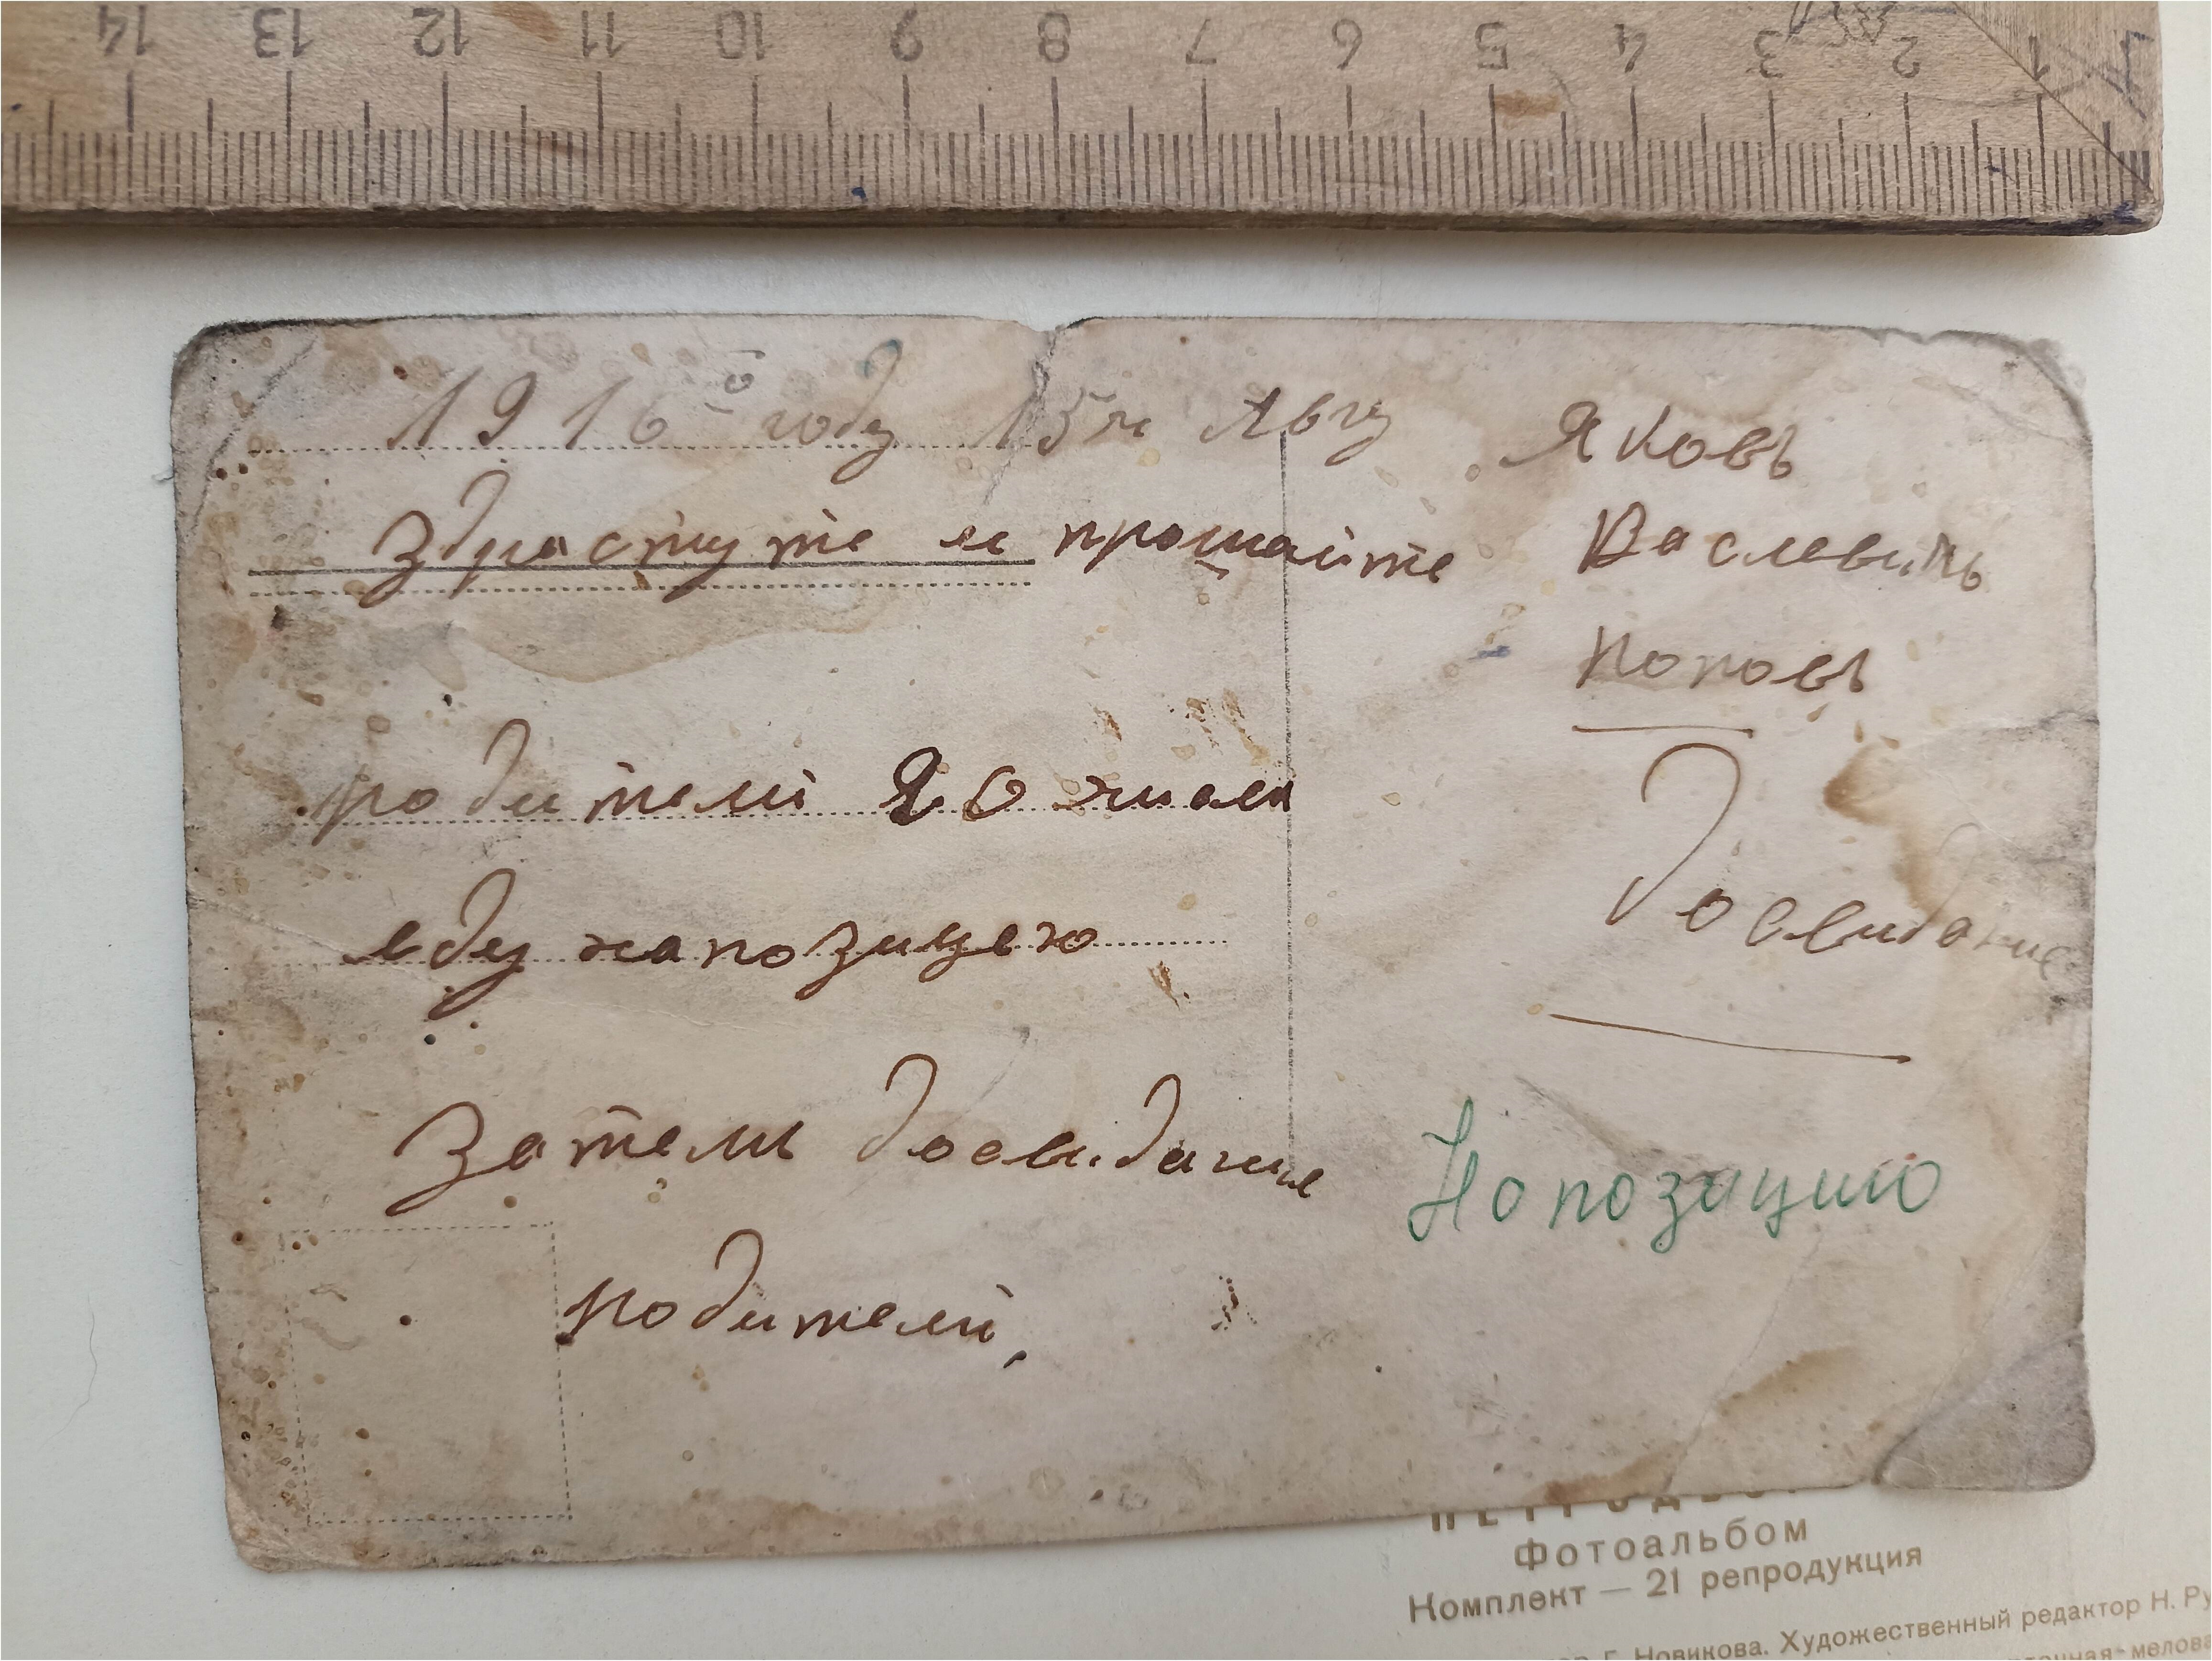 14 13 12 11 10 9 8 7 6 5 4 3 2 1
1916й году 15го Авгу
здрастуте и прощайте
родители Я
еду на позицею
Затемъ досвидание
родители,
Яковъ
Васлевичь
Поповъ
Досвидание
На позицию
Фотоальбом
Комплект — 21 репродукция
Г. Новикова. Художественный редактор Н. Ру